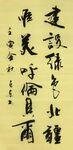 建設綠色北疆
唯美呼倫貝爾